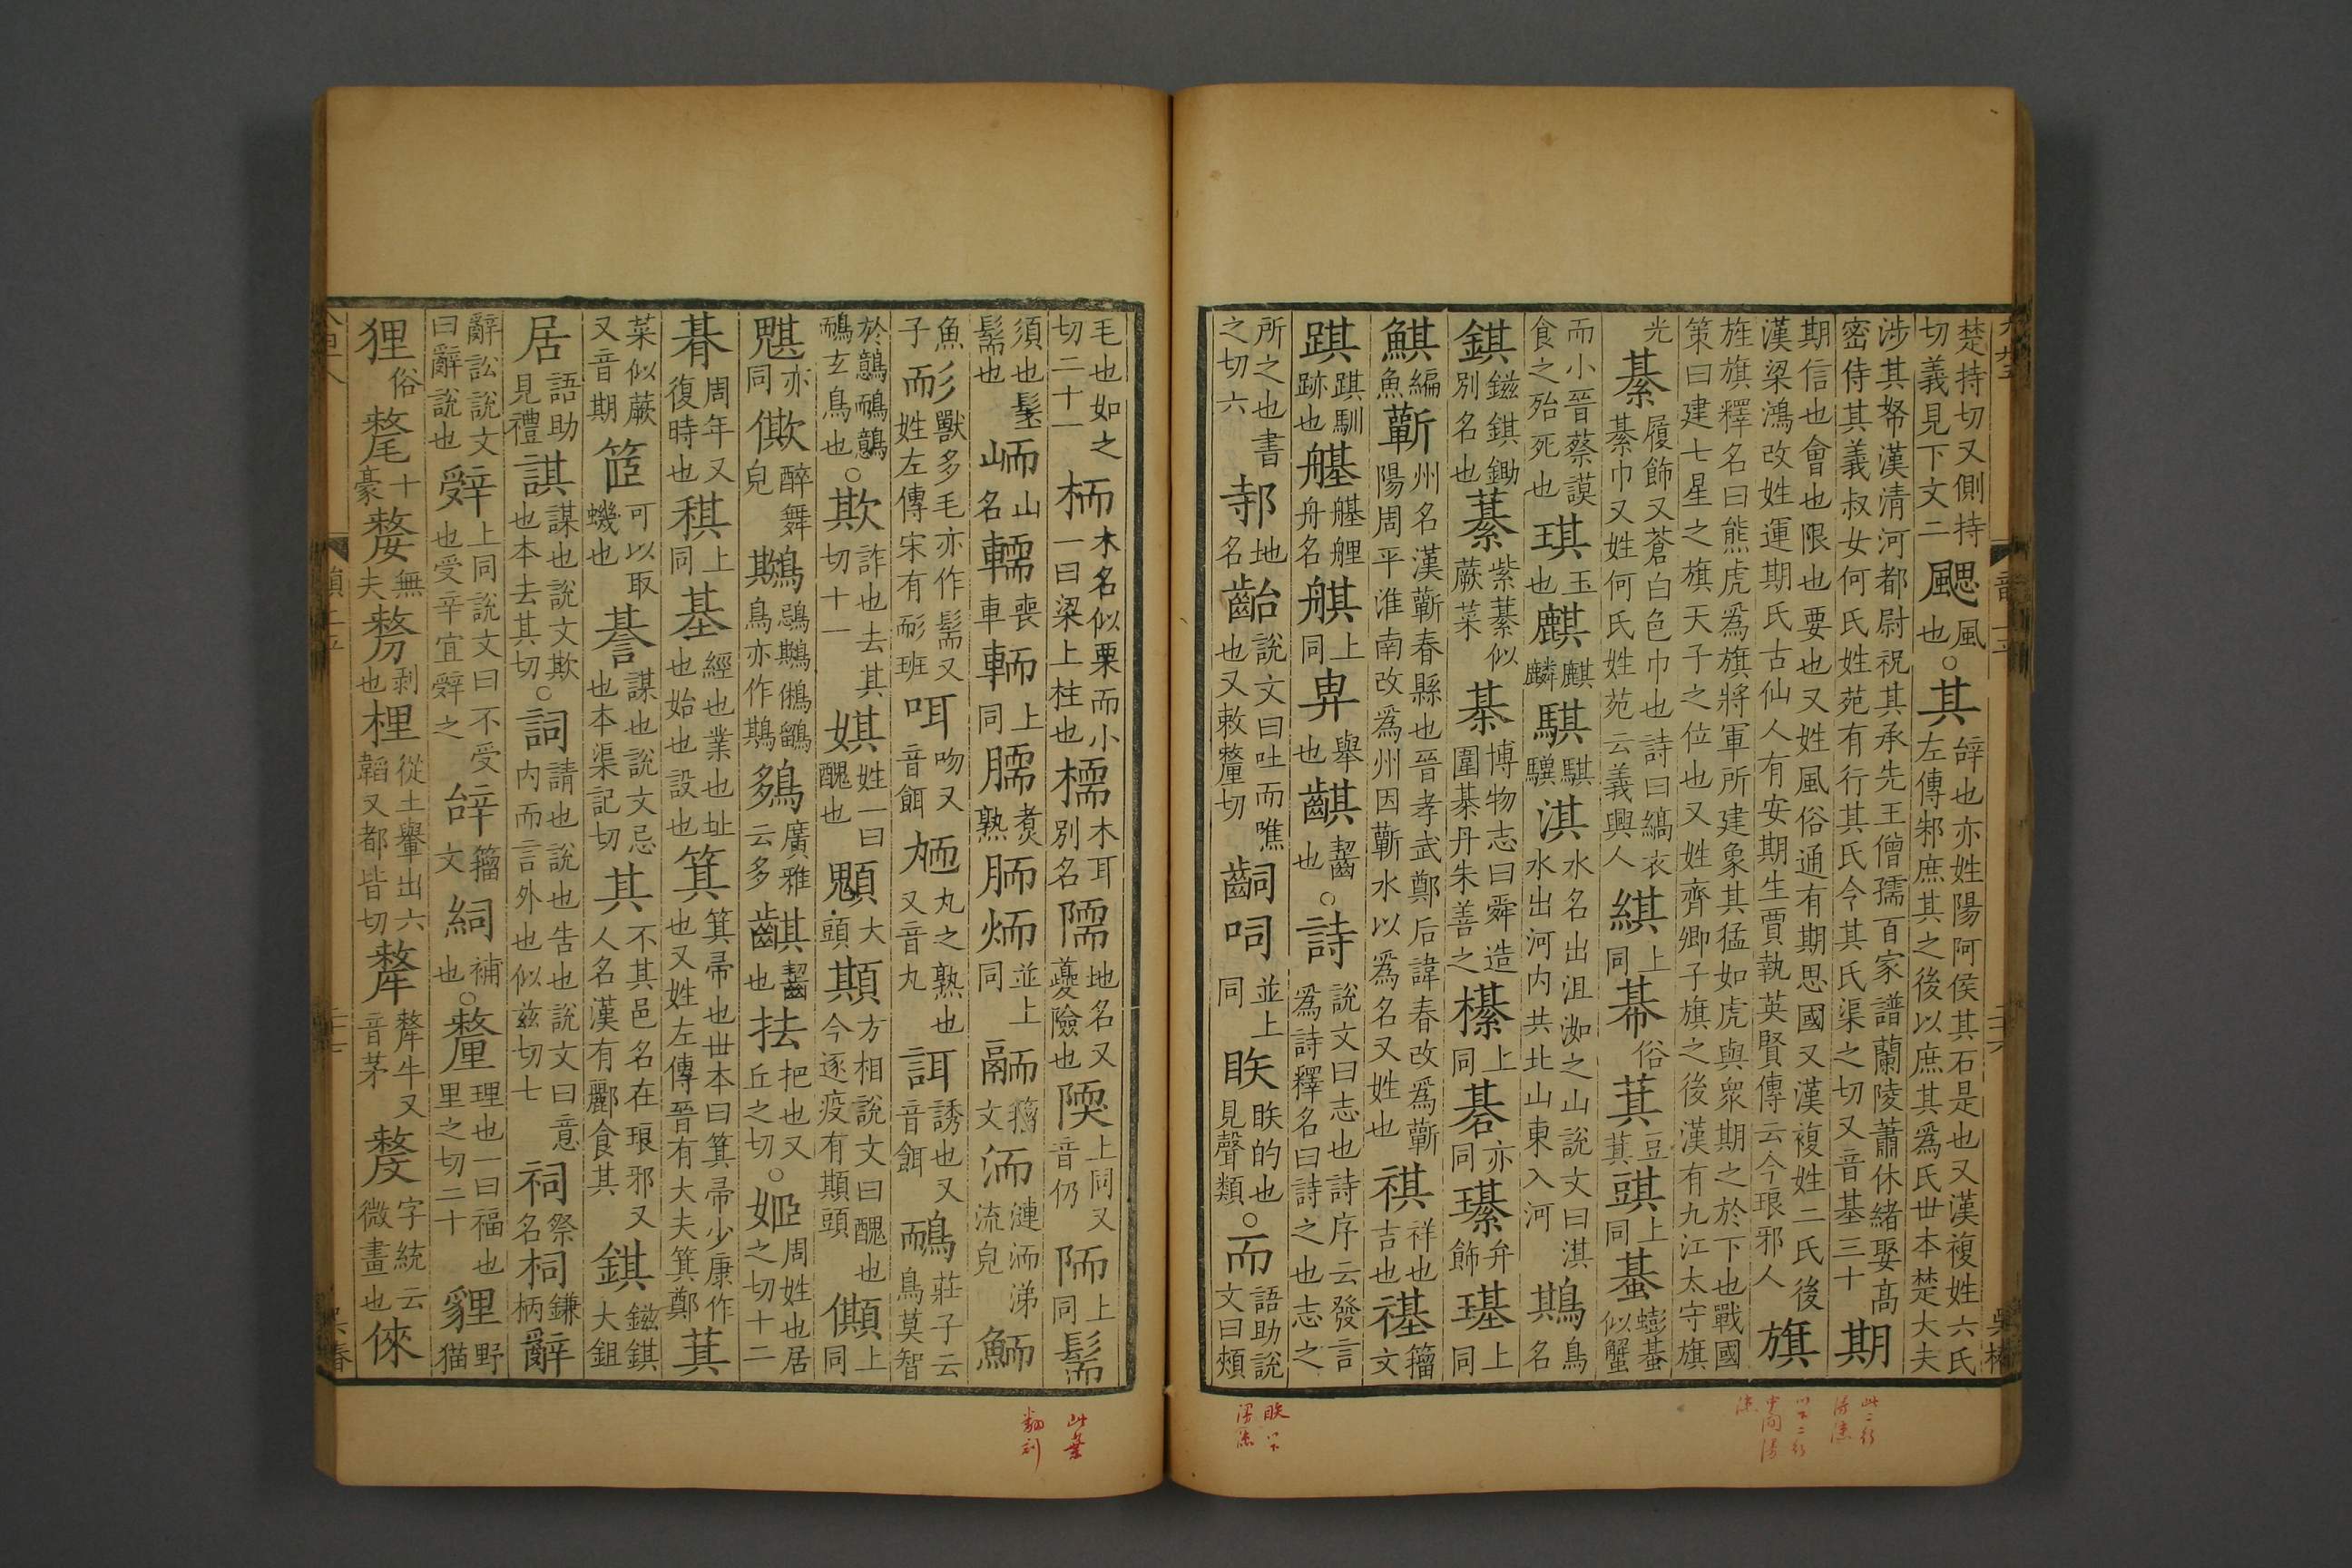 楚持切又側持切義見下文二颸風也○其辝也亦姓陽阿侯其石是也又漢複姓六氏左傳邾庶其之後以庶其爲氏丗本楚大夫
涉其帑漢清河都尉祝其承先王僧孺百家譜蘭陵蕭休緒娶髙密侍其義叔女何氏姓苑有行其氏今其氏渠之切又音基三十期
期信也會也限也要也又姓風俗通有期思國又漢複姓二氏後漢梁鴻改姓運期氏古仙人有安期生賈執英賢傳云今琅邪人旗
旌旗釋名曰熊虎爲旗將軍所建象其猛如虎與衆期之於下也戰國策曰建七星之旗天子之位也又姓齊卿子旗之後漢有九江太守旗
光綦履飾又蒼白色巾也詩曰縞衣綦巾又姓何氏姓苑云義興人綨上同帺俗萁豆萁䠕上同蜝蟛蜝似蟹
而小晉蔡謨食之殆死也琪玉也麒麒麟騏騏驥淇水名出沮洳之山說文曰淇水出河内共北山東入河鶀鳥名
錤鎡錤鋤別名也藄紫藄似蕨菜棊博物志曰舜造圍棊丹朱善之櫀上同碁亦同璂弁飾璂上同
鯕鯿魚蘄州名漢蘄春縣也晉孝武鄭后諱春改爲蘄陽周平淮南改爲州因蘄水以爲名又姓也祺祥也吉也禥籀文
踑踑馴跡也艋艃舟名䑴上同畁舉也䶞齧也○詩說文曰志也詩序云發言爲詩釋名曰詩之也志之
所之也書之切六邿地名齝說文曰吐而噍也又敕釐切齝呞並上同眣眣的也見聲類○而語助說文曰頰
毛也如之切二十一栭木名似栗而小一曰梁上柱也檽木耳別名隭地名又夒險也陾上同又音仍陑上同髵
須也髵也髶峏山名轜喪車輀上同臑煑熟胹炳並上同鬲籀文洏漣洏涕流皃鮞
魚子耏獸多毛亦作髵又姓左傳宋有耏班咡吻又音餌𠒀丸之熟也又音丸誀誘也又音餌鴯莊子云鳥莫智
於鷾鴯鷾鴯玄鳥也○欺詐也去其切十一娸姓一曰醜也䫏大頭䫏方相說文曰醜也今逐疫有䫏頭僛上同
魌亦同僛醉舞皃鶀鵋鶀鵂鶹鳥亦作鶀𪀔廣雅云多䶞齧也抾把也又丘之切○姬周姓也居之切十二
朞周年又復時也稘上同基經也業也址也始也設也箕箕帚也丗本曰箕帚少康作也又姓左傳晉有大夫箕鄭萁
菜似蕨又音期䇫可以取蟣也諅謀也說文忌也本渠記切其不其邑名在琅邪又人名漢有酈食其錤鎡錤大鉏
居語助見禮諆謀也說文欺也本去其切○詞請也說也告也說文曰意内而言外也似兹切七祠祭名柌鎌柄辭
辭訟說文曰辭說也辤上同說文曰不受也受辛宜辤之辝籀文䋯補也○釐理也一曰福也里之切二十貍野猫
狸俗氂十豪嫠無夫剺剥也梩從土轝出六韜又都皆切犛犛牛又音茅孷字統云微畫也倈
此二行
以下二行
眣以下
此葉
翻刻